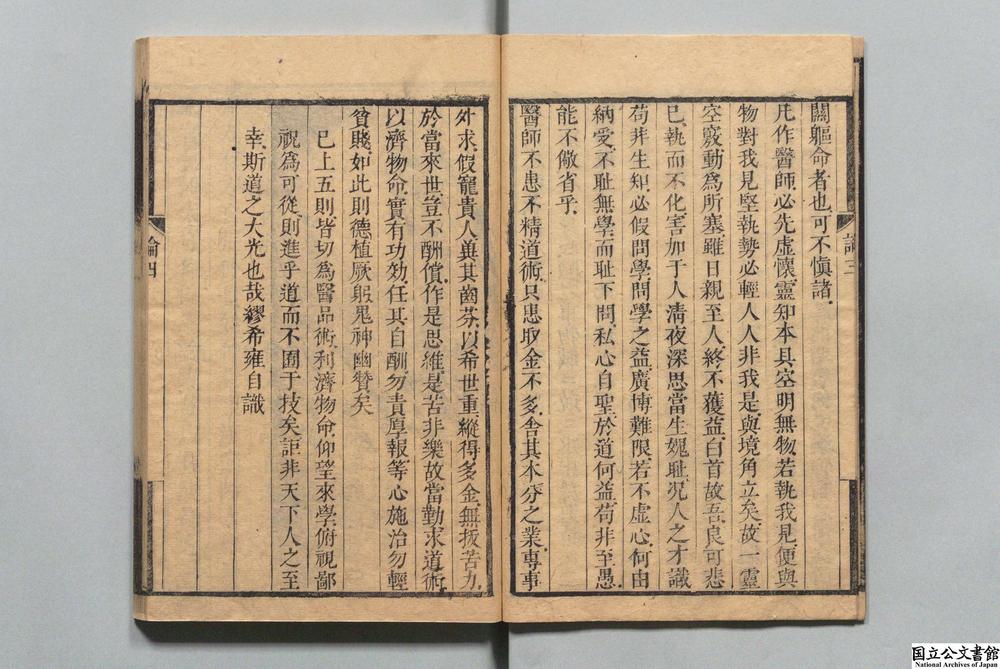 關軀命者也可不愼諸
凡作醫師必先虛懷靈知本具空明無物若執我見便與
物對我見堅執勢必輕人人非我是與境角立矣故一靈
空竅動爲所塞雖日親至人終不獲益白首故吾良可悲
已執而不化害加于人淸夜深思當生媿耻況人之才識
苟非生知必假問學問學之益廣博難限若不虛心何由
納受不耻無學而耻下問私心自聖於道何益苟非至愚
能不儆省乎
醫師不患不精道術只患取金不多舍其本分之業專事
論三
外求假寵貴人兾其齒芬以希世重縱得多金無拔苦力
於當來世豈不酬償作是思維是苦非樂故當勤求道術
以濟物命實有功効任其自酬勿責厚報等心施治勿輕
貧賤如此則德植厥躬鬼神幽贊矣
已上五則皆切爲醫品術利濟物命仰望來學俯視鄙
祝爲可從則進乎道而不囿于技矣詎非天下人之至
幸斯道之大光也哉繆希雍自識
論四
国立公文書館
National Archives of Japan